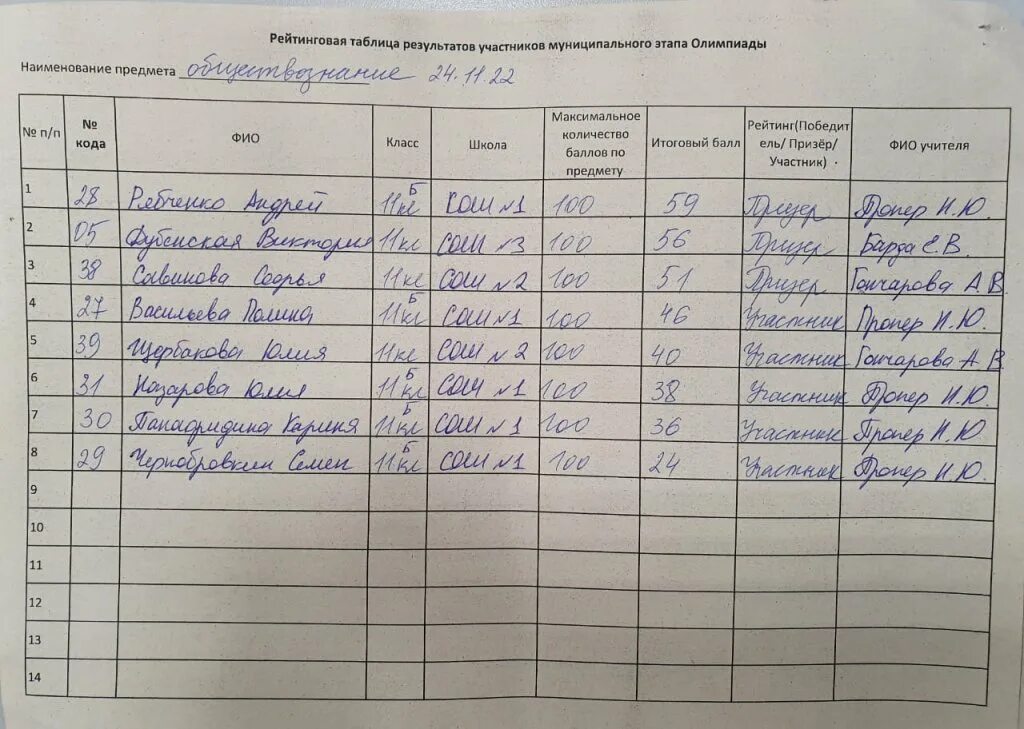 Рейтинговая таблица результатов участников муниципального этапа Олимпиады
Наименование предмета обществознание 24.11.22
№ п/п № кода ФИО Класс Школа Максимальное количество баллов по предмету Итоговый балл Рейтинг(Победитель/ Призёр/ Участник) ФИО учителя
1 28 Рябченко Андрей 11Б кл СОШ №1 100 59 Призер Пропер И.Ю.
2 05 Дубенская Виктория 11кл СОШ №3 100 56 Призер Барда Е.В.
3 38 Савинова Софья 11кл СОШ №2 100 51 Призер Гончарова А.В.
4 27 Васильева Полина 11Б кл СОШ №1 100 46 Участник Пропер И.Ю.
5 39 Щербакова Юлия 11кл СОШ №2 100 40 Участник Гончарова А.В.
6 31 Назарова Юлия 11Б кл СОШ №1 100 38 Участник Пропер И.Ю.
7 30 Папафридина Карина 11Б кл СОШ №1 100 36 Участник Пропер И.Ю.
8 29 Чернобровкин Семен 11Б кл СОШ №1 100 24 Участник Пропер И.Ю.
9
10
11
12
13
14